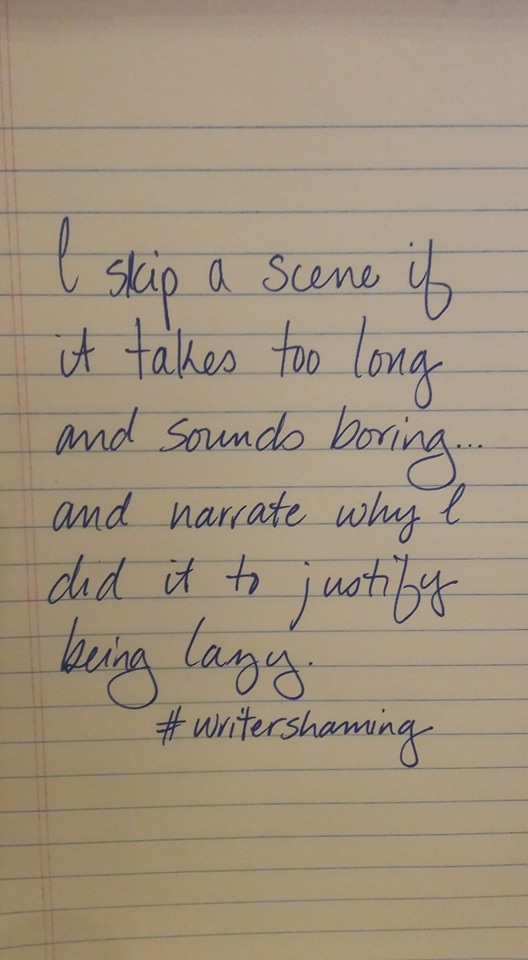 I skip a scene if
it takes too long
and sounds boring...
and narrate why I
did it to justify
being lazy.
#writershaming